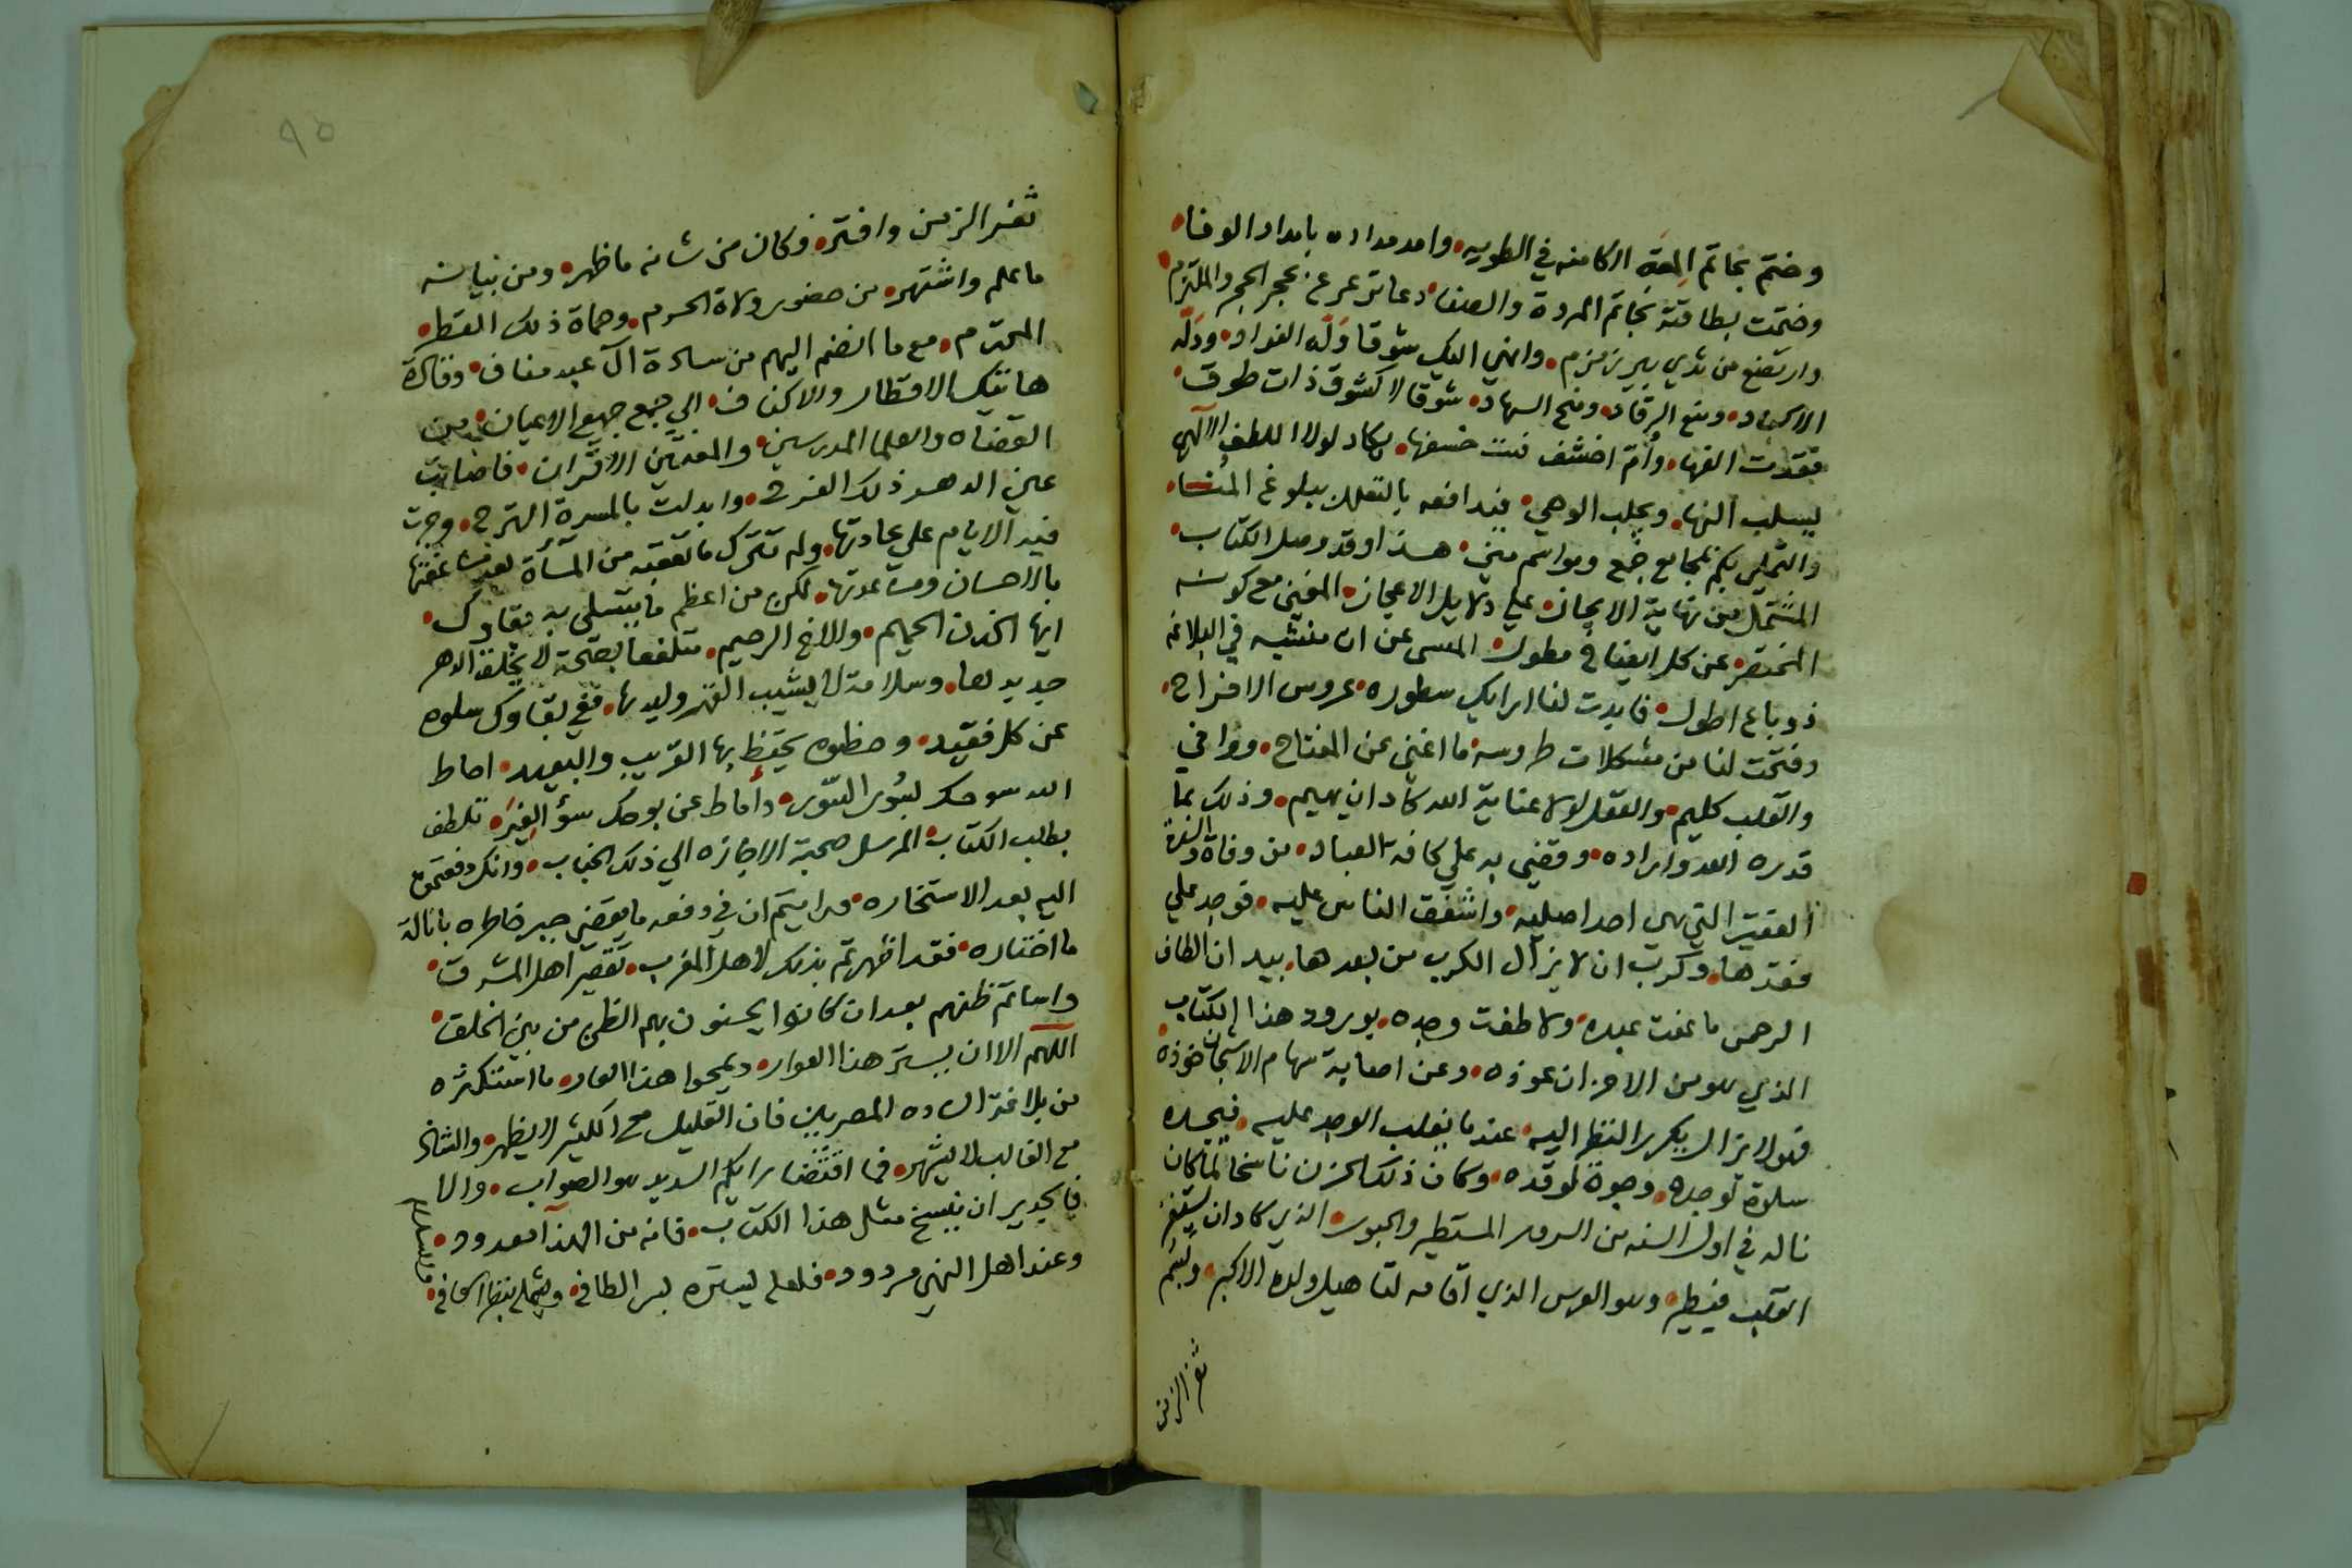 وختم بخاتم المقة الكامنه في الطويه وامد مداده بامداد الوفا
وختمت بطاقته بخاتم المودة والصفا دعا من عرعر بحجر الحجر والملتزم
وارتضع من ثدي بير زمزم وانهي اليك شوقا وله الفواد ودله
الاكباد ومنع الرقاد ومنح السهاد شوقا لا كشوق ذات طوق
فقدت الفها وأم اخشف خشفها يكاد لولا اللطف الالهي
يسلب النها ويجلب الوهي فندافعه بالتعلل ببلوغ المنا
والتملي بكم بمجامع جمع ومواسم مني هذا وقد وصل الكتاب
المشتمل من نهاية الايجاز علي دلايل الاعجاز المغني مع كونه
المختصر عن كل ايضاح مطول المسى عن ان منشيه في البلاغة
ذو باع اطول فابدت لنا ارايك سطوره عروس الافراح
وفتحت لنا من مشكلات طروسه ما اغني عن المفتاح ووافي
والقلب كليم والعقل لولا عناية الله كاد ان يهيم وذلك بما
قدره الله واراده وقضي به علي كافة العباد من وفاة والدة
الفقير التي هي احد اصليه واشفق الناس عليه فوجد علي
فقدها وكرب ان لا يزال الكرب من بعدها بيد ان الطاف
الرحمن ما عفت عبده ولاطفت وجده بورود هذا الكتاب
الذي هو من الاحزان عوذه وعن اصابة سهام الاشجان خوذه
فهو لا يزال يكرر النظر اليه عند ما يغلب الوجد عليه فيجده
سلوة لوجده وجوة لموقده وكان ذلك الحزن ناسخا لما كان
ناله في اول السنه من السرور المستطير والحبور الذي كاد ان يستفز
القلب فيطير وهو العرس الذي اقامه لتاهيل ولده الاكبر وبسم
ثغر الزمن
ثغر الزمن وافتر فكان من شانه ما ظهر ومن نبيانه
ما علم واشتهر من حضور ولاة الحرم وحماة ذلك القطر
المحترم مع ما انضم اليهم من سادة آل عبد مناف وقادة
هاتيك الاقطار والاكناف الي جمع جميع الاعيان من
القضاه والعلما المدرسين والمفتين الاقران فاصابت
عين الدهر ذلك الفرح وابدلت بالمسرة الترح وجرت
فيه الايام علي عادتها ولم تترك ما تعقبه من المسأة بعد مساعفتها
بالاحسان ومساعدتها لكن من اعظم ما يتسلى به بقاوك
ايها الخدن الحميم والاخ الرحيم متلفعا بصحة لا يخلق الدهر
جديدها وسلامة لا يشيب القهر وليدها ففي بقاوك سلوه
عن كل فقيد وحظوه يحتظ بها القريب والبعيد احاط
الله سوحك بسُور السّور وأماط عن بوحك سوُ الغِيَر تلطف
بطلب الكتاب المرسل صحبة الاجازه الي ذلك الجناب وانك دفعتموه
اليه بعد الاستخاره ورايتم ان في دفعه ما يقضي جبر خاطره بانالة
ما اختاره فقد اظهرتم بذلك لاهل المغرب تقصير اهل المشرق
واساتم ظنهم بعد ان كانوا يحسنون بهم الظن من بين الخلق
اللهم الا ان يستر هذا العوار ويمحوا هذا العار ما استكثره
من بلاغة الساده المصريين فان القليل مع الكثير لا يظهر والشاذ
مع الغالب لا يشهر فما اقتضا رايكم السديد هو الصواب والا
فالجدير ان ينسخ مثل هذا الكتاب فانه من الهذا معدود
وعند اهل النهي مردود فلعله ليستره بسر الطافي ويشمله بنظر الكافي